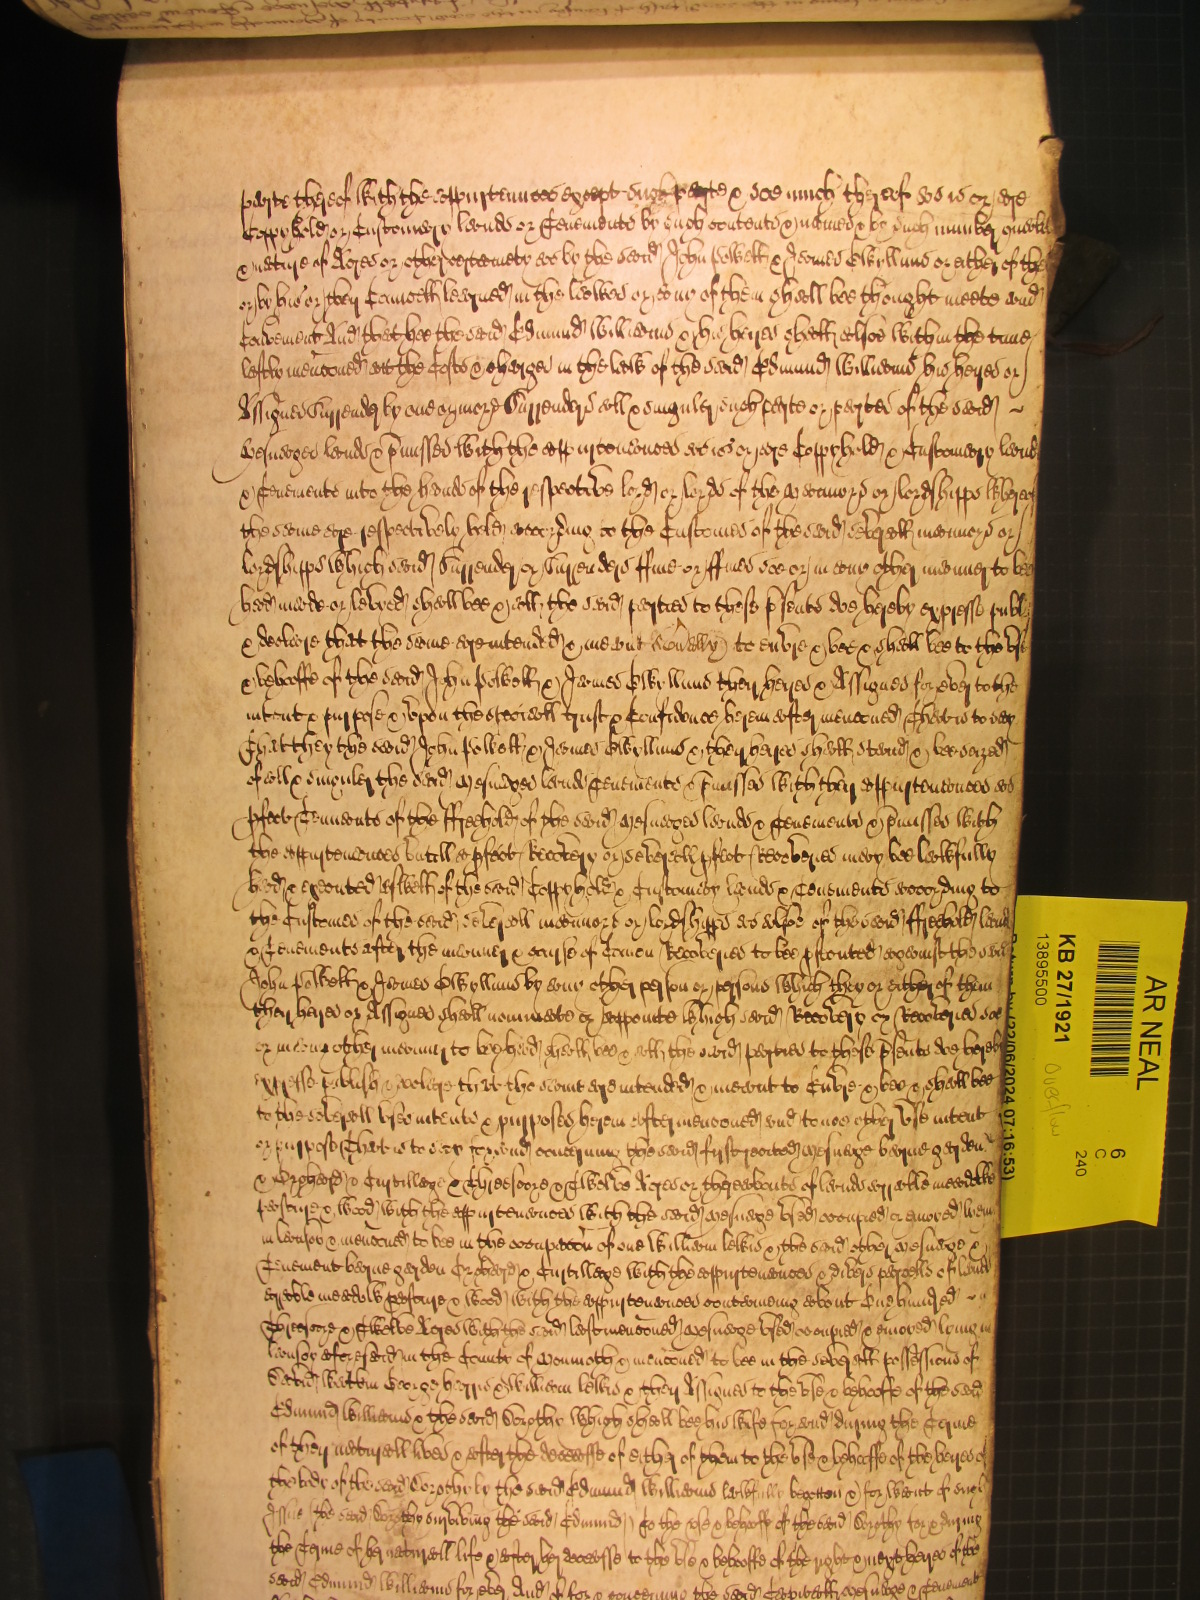 parte thereof with the appurtenances except such parte & soe much therof as is or are
Coppyhold or Customary lands or Tenements by such contents & names & by such number quality
& nature of Acres or other certainty as by the said John Powell & James Gwyllims or either of them
or by his or their Councell learned in the lawes or anie of them shall bee thought meete and
Convenient And that hee the said Edmund Williams & his heires shall alsoe within the time
last menconed att the Costs & charges in the law of the said Edmund Williams his heires or
Assignes Surrender by one or more Surrenders all & singuler such parte or partes of the said
Mesuages lands & p'misses with the appurtenances as is or are Coppyhold & Customary lands
& Tenements into the hands of the respective lord or lords of the Mannors or lordshipps whereof
the same are respectively held according to the Customes of the said severall mannors or
lordshipps which said Surrender or Surrenders ffine or ffines soe or in anie other manner to bee
had made or levved shall bee & all the said parties to these p'sents doe hereby expresse publish
& declare that the same are intended & meant to enure & bee & shall bee to the use
& behooffe of the said John Powell & James Gwyllims their heires & Assignes for ever to the
intent & purpose & upon the speciall trust & Confidence herein after menconed That is to say
That they the said John Powell & James Gwyllims & their heires shall stand & bee seized
of all & singuler the said Mesuages lands Tenements & p'misses with their appurtenances as
p'fect Tennants of the ffreehold of the said Mesuages lands & Tenements & p'misses with
the appurtenances untill a p'fect Recovery or severall p'fect Recoveries may bee lawfully
had & executed aswell of the said Coppyhold & Customary lands & Tenements according to
the Customes of the said severall mannors or lordshipps as alsoe of the said ffreehold lands
& Tenements after the manner & course of Comon Recoveries to bee p'secuted against the said
John Powell & James Gwyllims by anie other person or persons which they or either of them
their heires or Assignes shall nominate or appointe which said Recovery or Recoveries soe
or in anie other manner to bee had shall bee & all the said parties to these p'sents doe hereby
expresse publish & declare that the same are intended & meant to Enure & bee & shall bee
to the severall uses intents & purposes herein after menconed and to noe other use intent
or purpose That is to say for and concerning the said first recited Mesuage barne garden
& Orchard & Curtillage & Threescore & Twelve Acres or thereabouts of lands arrable meadowe
pasture & wood with the appurtenances with the said Mesuage used occupied or enioyed
in lansoy & menconed to bee in the occupacon of one William lewis & the said other Mesuage &
Tenement barne garden Orchard & Curtillage with the appurtenances & divers parcells of land
arrable meadow pasture & wood with the appurtenances conteineing about One hundred
Threescore & Twelve Acres with the said last menconed Mesuage used occupied & enioyed lying in
lansoy aforesaid in the County of Monmoth & menconed to bee in the severall possessions of
David Watkin George harris & William lewis & their Assignes to the use & behooffe of the said
Edmund Williams & the said Dorothy which shall bee his wife for and during the Terme
of their naturall lives & after the decease of either of them to the use & behooffe of the heires of
the body of the said Dorothy by the said Edmund Williams lawfully begotten & for want of such
Issue (the said Dorothy surviving the said Edmund) to the use & behooffe of the said Dorothy for & during
the Terme of her naturall life & after her decease to the use & behooffe of the right & next heires of the
said Edmund Williams for ever And for & concerning the said Capitall Mesuage & Tenement
AR NEAL
6
C
240
KB 27/1921
13895500
(22/06/2024 07:16:53)
Overflow